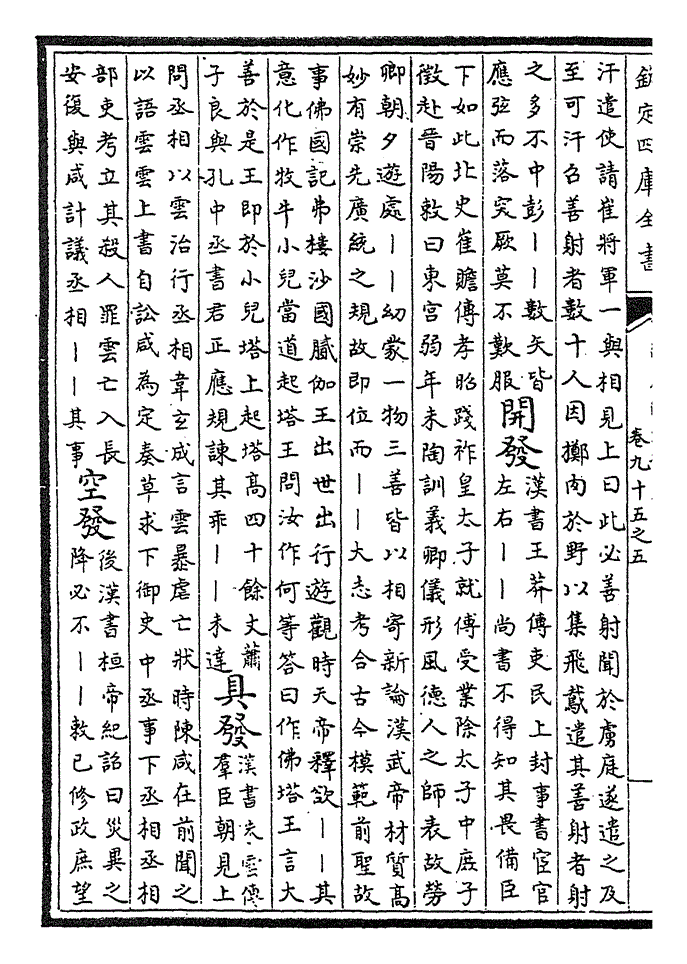 欽定四庫全書
卷九十五之五
汗遣使請崔將軍一與相見上曰此必善射聞於虜庭遂遣之及
至可汗召善射者數十人因擲肉於野以集飛鳶遣其善射者射
之多不中彭丨丨數矢皆
應弦而落突厥莫不歎服
開發
漢書王莽傳吏民上封事書宦官
左右丨丨尚書不得知其畏備臣
下如此北史崔贍傳孝昭踐祚皇太子就傅受業除太子中庶子
徵赴晉陽敕曰東宮弱年未陶訓義卿儀形風德人之師表故勞
卿朝夕遊處丨丨幼蒙一物三善皆以相寄新論漢武帝材質高
妙有崇先廣統之規故即位而丨丨大志考合古今模範前聖故
事佛國記弗樓沙國膩伽王出世出行遊觀時天帝釋欲丨丨其
意化作牧牛小兒當道起塔王問汝作何等答曰作佛塔王言大
善於是王即於小兒塔上起塔高四十餘丈蕭
子良與孔中丞書君正應規諫其乖丨丨未達
具發
漢書朱雲傳
羣臣朝見上
問丞相以雲治行丞相韋玄成言雲暴虐亡狀時陳咸在前聞之
以語雲雲上書自訟咸為定奏草求下御史中丞事下丞相丞相
部吏考立其殺人罪雲亡入長
安復與咸計議丞相丨丨其事
空發
後漢書桓帝紀詔曰災異之
降必不丨丨敕已修政庶望